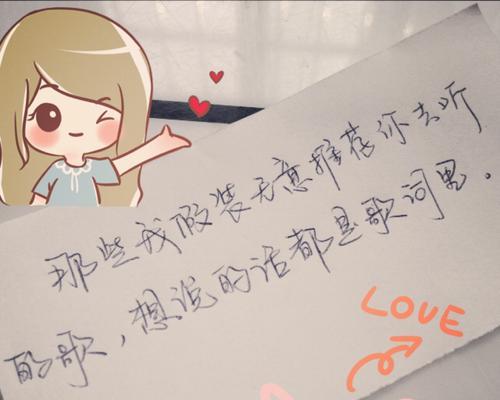 那些我假装无意推荐你去听
的歌，想说的话都是歌词里。
LOVE